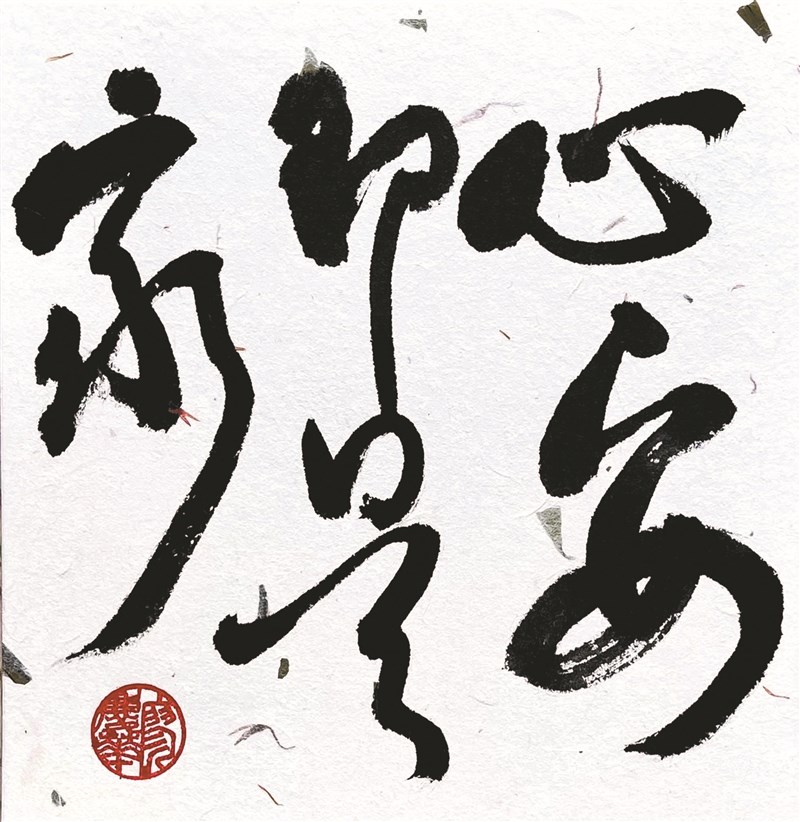 心安
即是
家